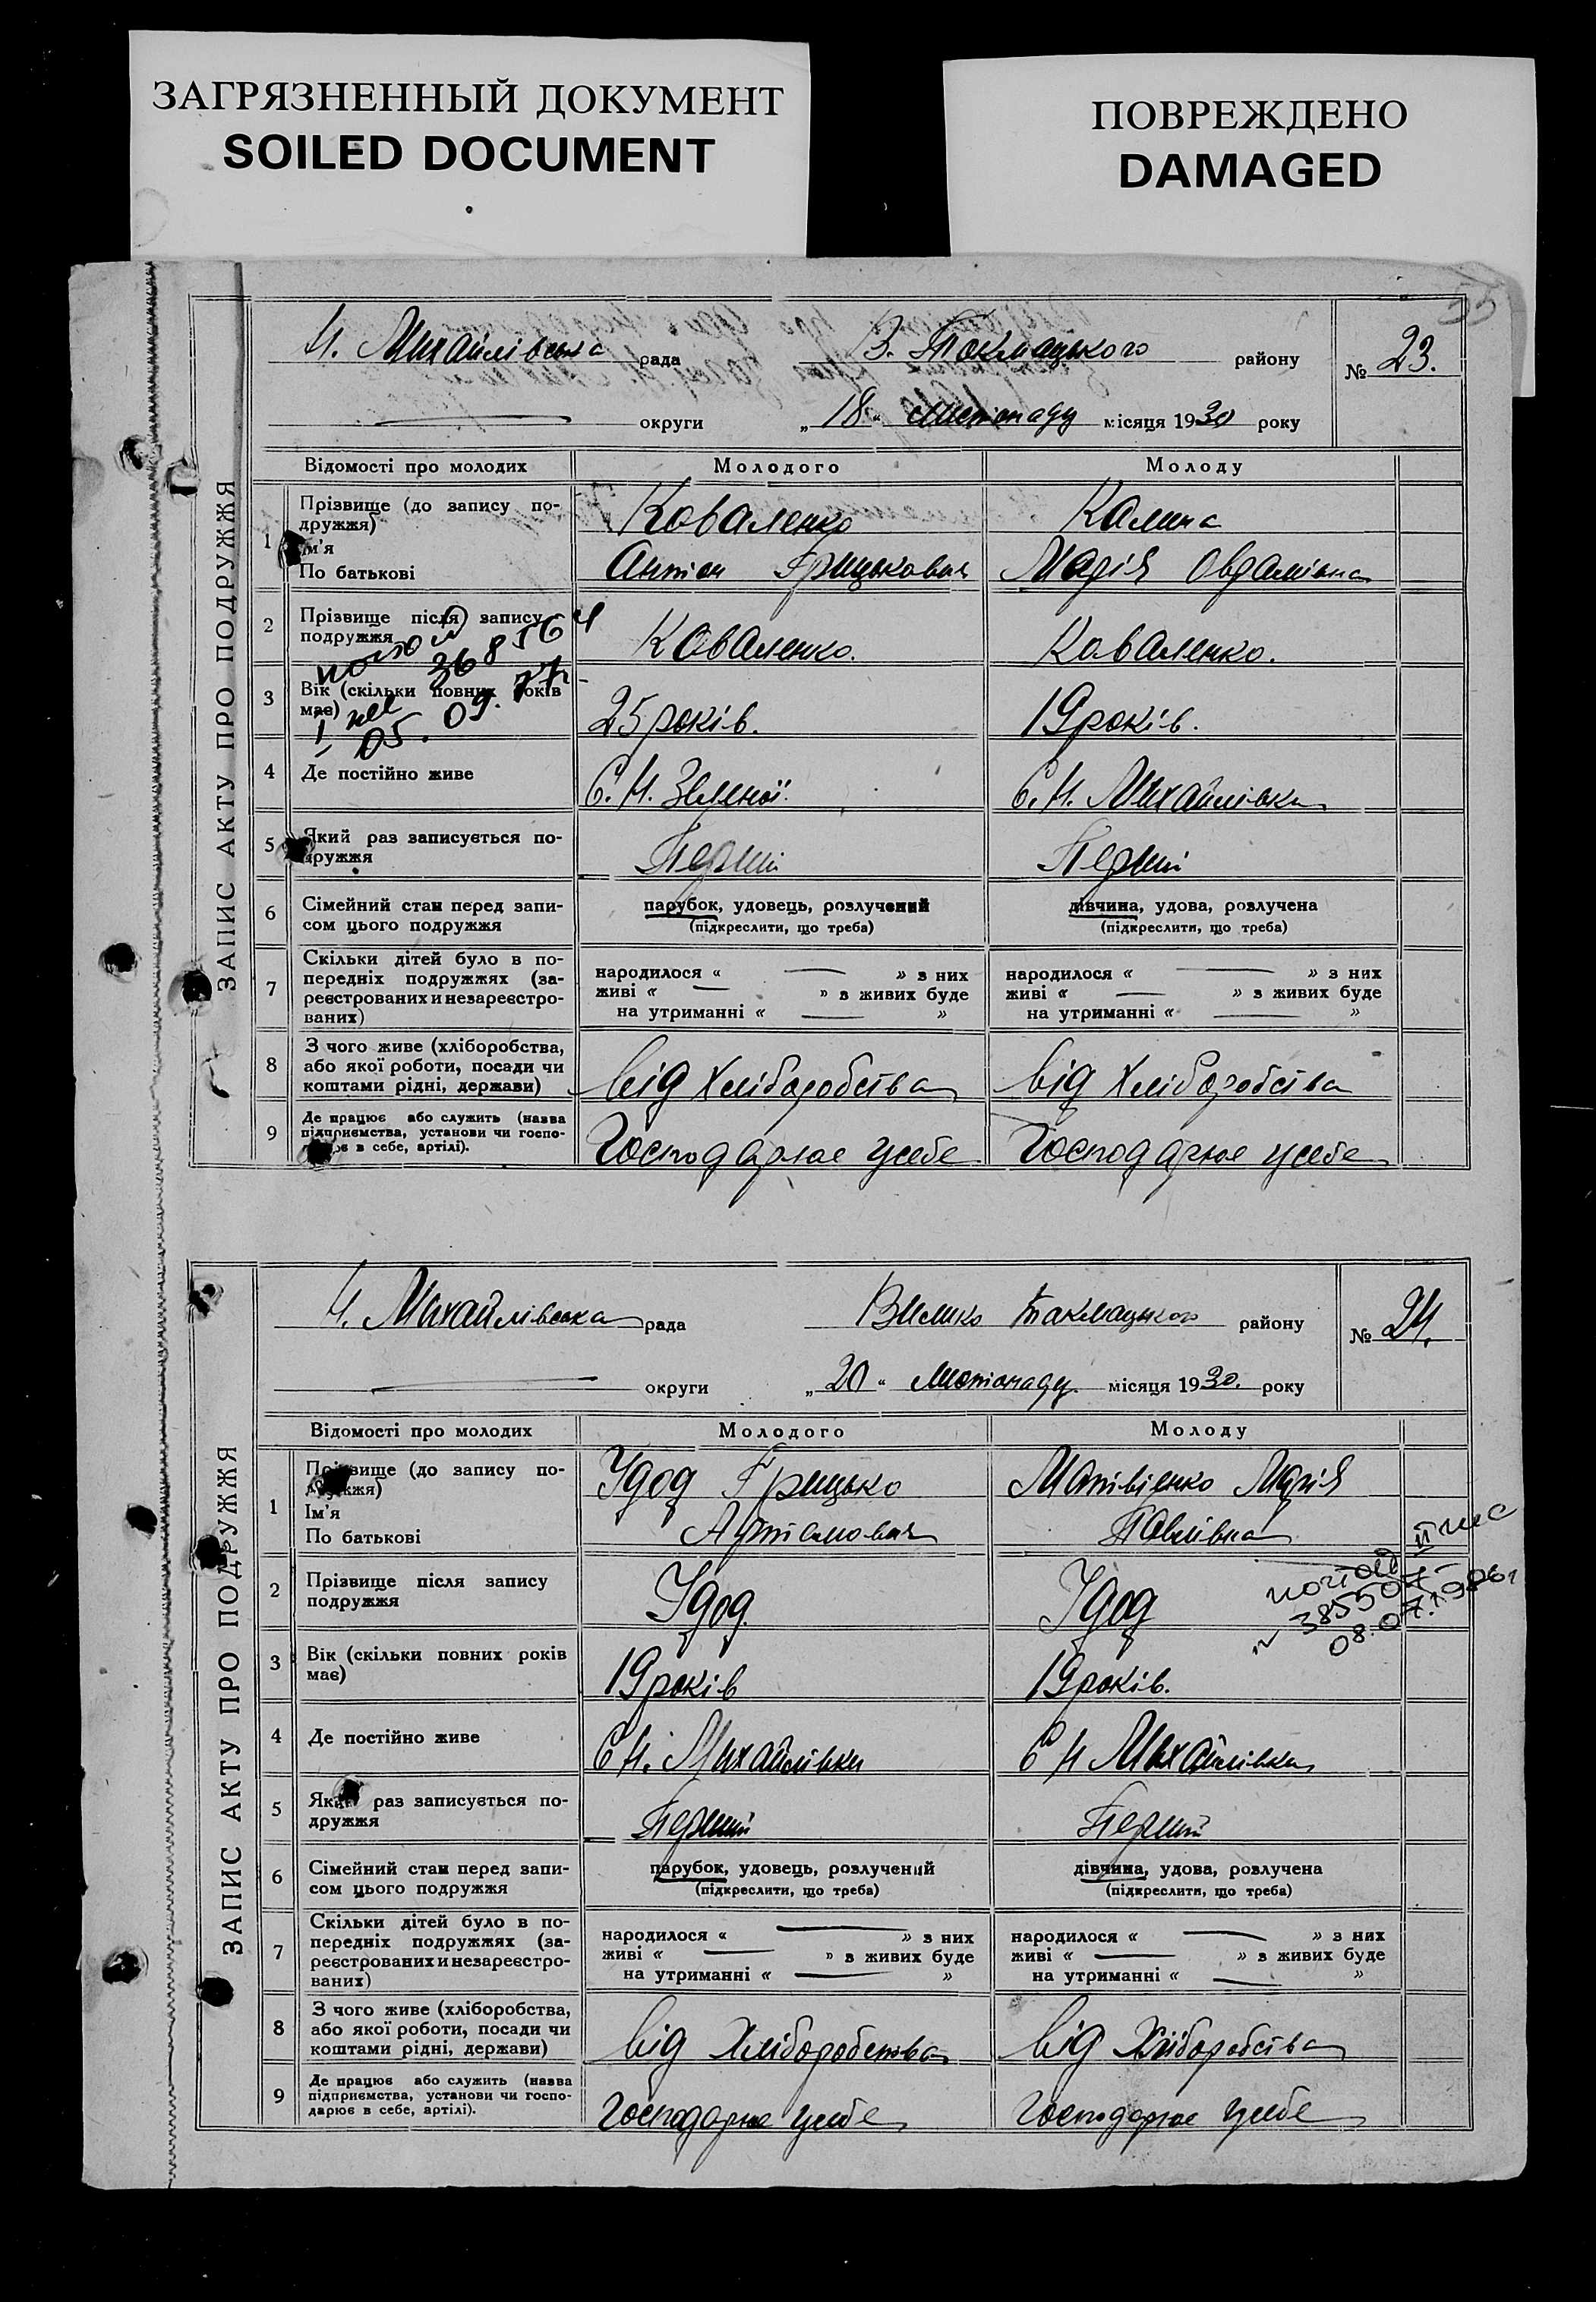 ЗАГРЯЗНЕННЫЙ ДОКУМЕНТ
SOILED DOCUMENT
ПОВРЕЖДЕНО
DAMAGED
55
ЗАПИС АКТУ ПРО ПОДРУЖЖЯ
Н. Михайлівська рада В. Токмацького району № 23.
округи „18“ листопаду місяця 1930 року
Відомості про молодих Молодого Молоду
1 Прізвище (до запису по- Коваленко Калина
дружжя)
Ім'я Антон Грицькович Марія Овдамівна
По батькові
2 Прізвище після запису Коваленко. Коваленко.
подружжя
368564
3 Вік (скільки повних років 25 років. 19 років.
має)
05.09.77
4 Де постійно живе С. Н. Зеленої. С. Н. Михайлівки
5 Який раз записується по- Перший Перший
дружжя
6 Сімейний стан перед запи- парубок, удовець, розлучений дівчина, удова, розлучена
сом цього подружжя (підкреслити, що треба) (підкреслити, що треба)
7 Скільки дітей було в по-
передніх подружжях (за- народилося « — » з них народилося « — » з них
реєстрованих и незареєстро- живі « — » з живих буде живі « — » з живих буде
ваних) на утриманні « — » на утриманні « — »
8 З чого живе (хліборобства,
або якої роботи, посади чи від хліборобства від хліборобства
коштами рідні, держави)
9 Де працює або служить (назва
підприємства, установи чи госпо- Господарює у себе Господарює у себе
дарює в себе, артілі).
ЗАПИС АКТУ ПРО ПОДРУЖЖЯ
Н. Михайлівська рада Велико Токмацького району № 24.
округи „20“ листопаду місяця 1930. року
Відомості про молодих Молодого Молоду
1 Прізвище (до запису по- Удод Грицько Матвієнко Марія
дружжя)
Ім'я Артамович Павлівна
По батькові
2 Прізвище після запису Удод Удод
подружжя
385507
08.07.1986г
3 Вік (скільки повних років 19 років 19 років.
має)
4 Де постійно живе С Н. Михайлівки С Н Михайлівки
5 Який раз записується по- Перший Перший
дружжя
6 Сімейний стан перед запи- парубок, удовець, розлучений дівчина, удова, розлучена
сом цього подружжя (підкреслити, що треба) (підкреслити, що треба)
7 Скільки дітей було в по-
передніх подружжях (за- народилося « — » з них народилося « — » з них
реєстрованих и незареєстро- живі « — » з живих буде живі « — » з живих буде
ваних) на утриманні « — » на утриманні « — »
8 З чого живе (хліборобства,
або якої роботи, посади чи від Хліборобства від Хліборобства
коштами рідні, держави)
9 Де працює або служить (назва
підприємства, установи чи госпо- Господарює у себе Господарює у себе
дарює в себе, артілі).